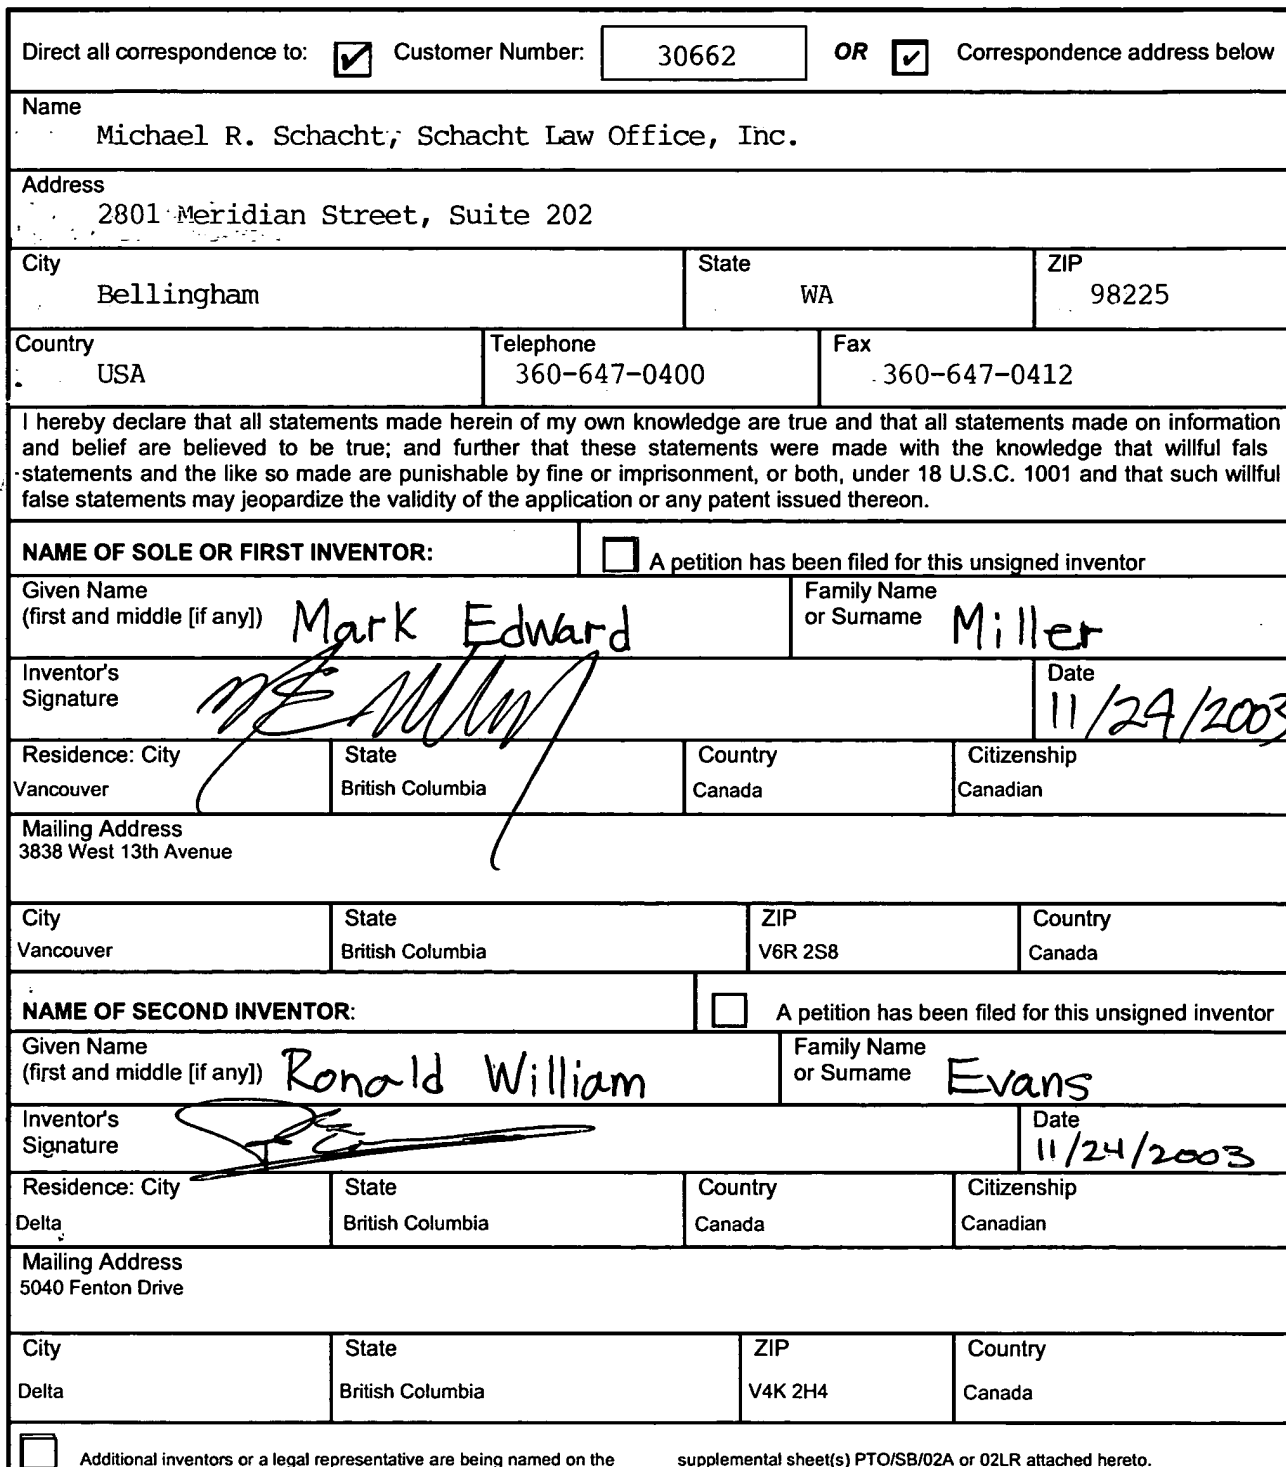 Direct all correspondence to: Customer Number: 30662 OR Correspondence address below
Name
Michael R. Schacht, Schacht Law Office, Inc.
Address
2801 Meridian Street, Suite 202
City State ZIP
Bellingham WA 98225
Country Telephone Fax
USA 360-647-0400 360-647-0412
I hereby declare that all statements made herein of my own knowledge are true and that all statements made on information
and belief are believed to be true; and further that these statements were made with the knowledge that willful fals
statements and the like so made are punishable by fine or imprisonment, or both, under 18 U.S.C. 1001 and that such willful
false statements may jeopardize the validity of the application or any patent issued thereon.
NAME OF SOLE OR FIRST INVENTOR: A petition has been filed for this unsigned inventor
Given Name Family Name
(first and middle [if any]) Mark Edward or Surname Miller
Inventor's Date
Signature 11/24/2003
Residence: City State Country Citizenship
Vancouver British Columbia Canada Canadian
Mailing Address
3838 West 13th Avenue
City State ZIP Country
Vancouver British Columbia V6R 2S8 Canada
NAME OF SECOND INVENTOR: A petition has been filed for this unsigned inventor
Given Name Family Name
(first and middle [if any]) Ronald William or Surname Evans
Inventor's Date
Signature 11/24/2003
Residence: City State Country Citizenship
Delta British Columbia Canada Canadian
Mailing Address
5040 Fenton Drive
City State ZIP Country
Delta British Columbia V4K 2H4 Canada
Additional inventors or a legal representative are being named on the supplemental sheet(s) PTO/SB/02A or 02LR attached hereto.